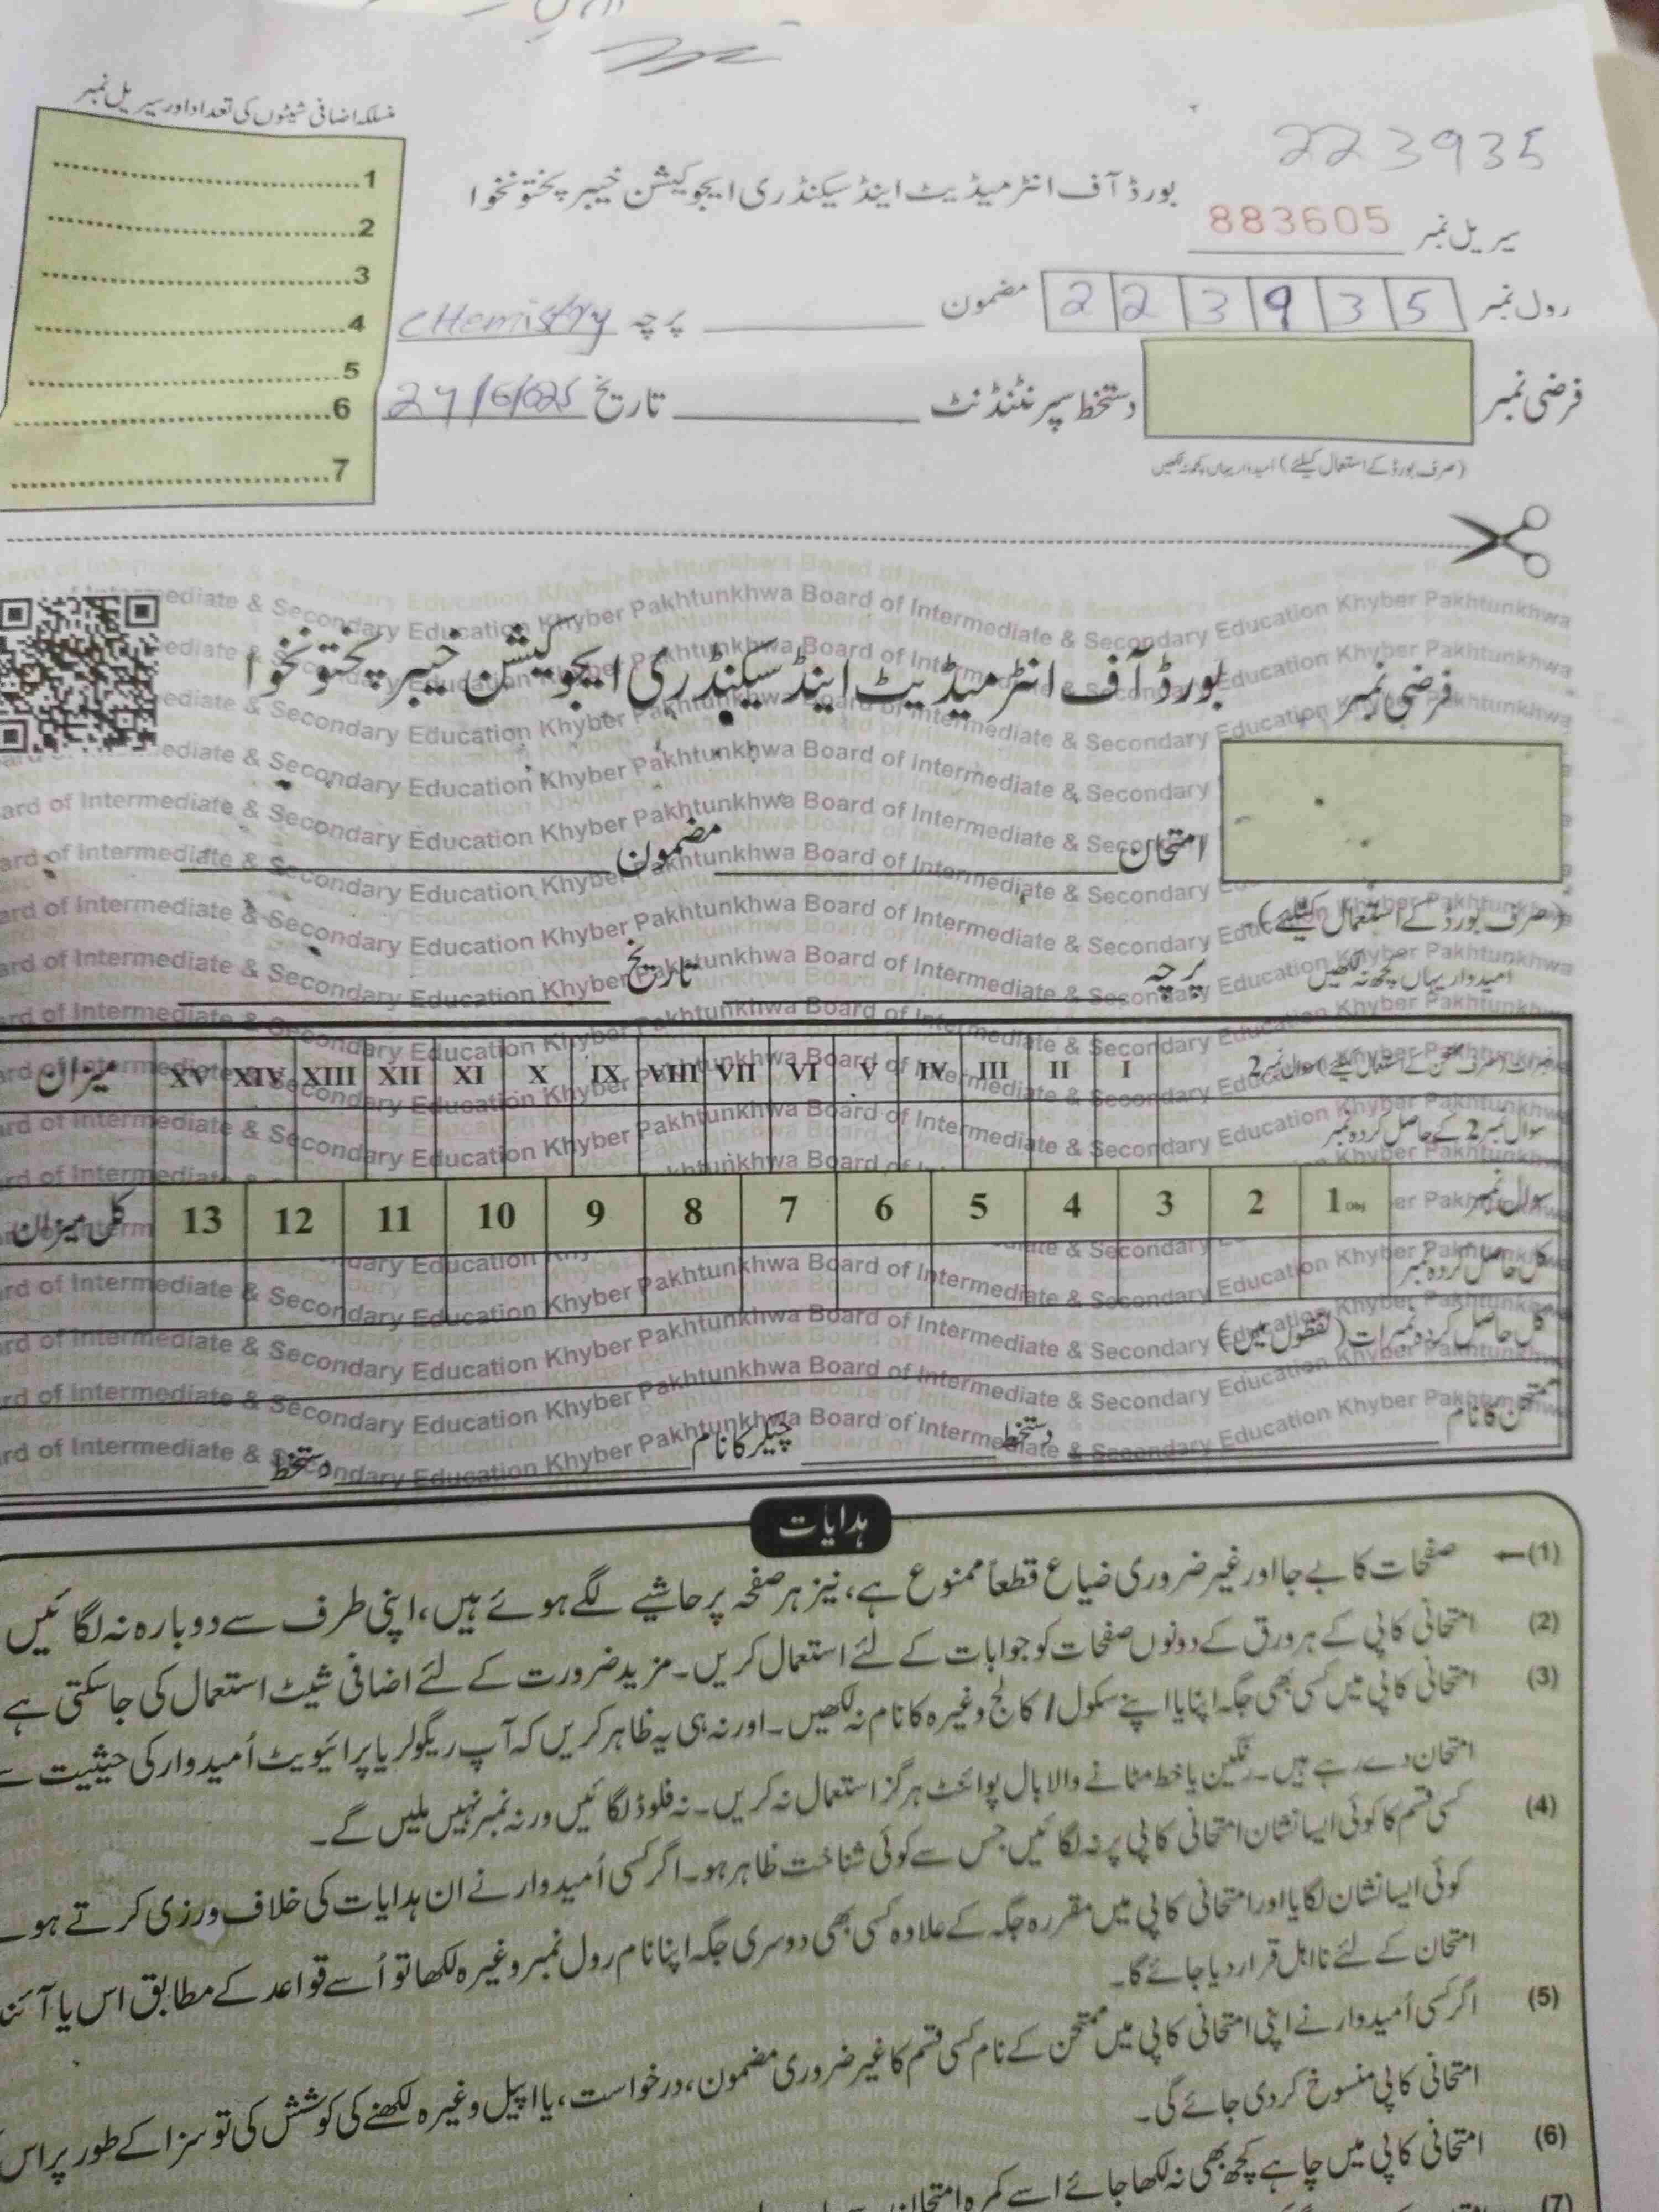 منسلکہ اضافی شیٹوں کی تعداد اور سیریل نمبر
1
2
3
4
5
6
7
223935
بورڈ آف انٹرمیڈیٹ اینڈ سیکنڈری ایجوکیشن خیبر پختونخوا
سیریل نمبر 883605
رول نمبر 2 2 3 9 3 5 مضمون پرچہ CHemistry
فرضی نمبر دستخط سپرنٹنڈنٹ تاریخ
(صرف بورڈ کے استعمال کیلئے) امیدوار یہاں کچھ نہ لکھیں
بورڈ آف انٹرمیڈیٹ اینڈ سیکنڈری ایجوکیشن خیبر پختونخوا
فرضی نمبر
امتحان مضمون
(صرف بورڈ کے استعمال کیلئے)
امیدوار یہاں کچھ نہ لکھیں
پرچہ تاریخ
نمبرات (صرف ممتحن کے استعمال کیلئے) سوال نمبر 2 I II III IV V VI VII VIII IX X XI XII XIII XIV XV میزان
سوال نمبر 2 کے حاصل کردہ نمبر
سوال نمبر 1 OBJ 2 3 4 5 6 7 8 9 10 11 12 13 کل میزان
کل حاصل کردہ نمبر
کل حاصل کردہ نمبرات (لفظوں میں)
ممتحن کا نام دستخط چیکر کا نام دستخط
Board of Intermediate & Secondary Education Khyber Pakhtunkhwa
ہدایات
(1) صفحات کا بے جا اور غیر ضروری ضیاع قطعاً ممنوع ہے، نیز ہر صفحہ پر حاشیے لگے ہوئے ہیں، اپنی طرف سے دوبارہ نہ لگائیں
(2) امتحانی کاپی کے ہر ورق کے دونوں صفحات کو جوابات کے لئے استعمال کریں۔ مزید ضرورت کے لئے اضافی شیٹ استعمال کی جاسکتی ہے
(3) امتحانی کاپی میں کسی بھی جگہ اپنا یا اپنے سکول / کالج وغیرہ کا نام نہ لکھیں۔ اور نہ ہی یہ ظاہر کریں کہ آپ ریگولر یا پرائیویٹ اُمیدوار کی حیثیت سے
امتحان دے رہے ہیں۔ رنگین یا خط مٹانے والا بال پوائنٹ ہرگز استعمال نہ کریں۔ نہ فلوڈ لگائیں ورنہ نمبر نہیں ملیں گے۔
(4) کسی قسم کا کوئی ایسا نشان امتحانی کاپی پر نہ لگائیں جس سے کوئی شناخت ظاہر ہو۔ اگر کسی اُمیدوار نے ان ہدایات کی خلاف ورزی کرتے ہو
کوئی ایسا نشان لگایا اور امتحانی کاپی میں مقررہ جگہ کے علاوہ کسی بھی دوسری جگہ اپنا نام رول نمبر وغیرہ لکھا تو اُسے قواعد کے مطابق اس یا
امتحان کے لئے نااہل قرار دیا جائے گا۔
(5) اگر کسی اُمیدوار نے اپنی امتحانی کاپی میں ممتحن کے نام کسی قسم کا غیر ضروری مضمون، درخواست، یا اپیل وغیرہ لکھنے کی کوشش کی تو سزا کے طور پر اس
امتحانی کاپی منسوخ کردی جائے گی۔
(6) امتحانی کاپی میں چاہے کچھ بھی نہ لکھا جائے اسے کمرہ
(7)